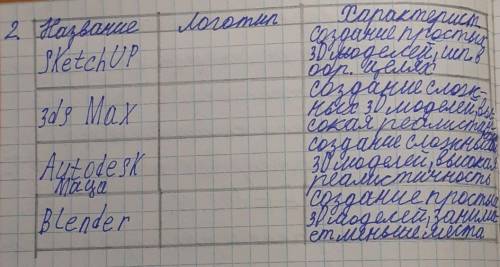 2. Название Логотип Характерист
SketchUP создание простых
3D моделей, исп. в
обр. целях
3ds Max создание слож-
ных 3D моделей, вы
сокая реалистич
Autodesk Маya создание сложных
3D моделей, высокая
реалистичность
Blender создание простых
3D моделей, занима
ет меньше места